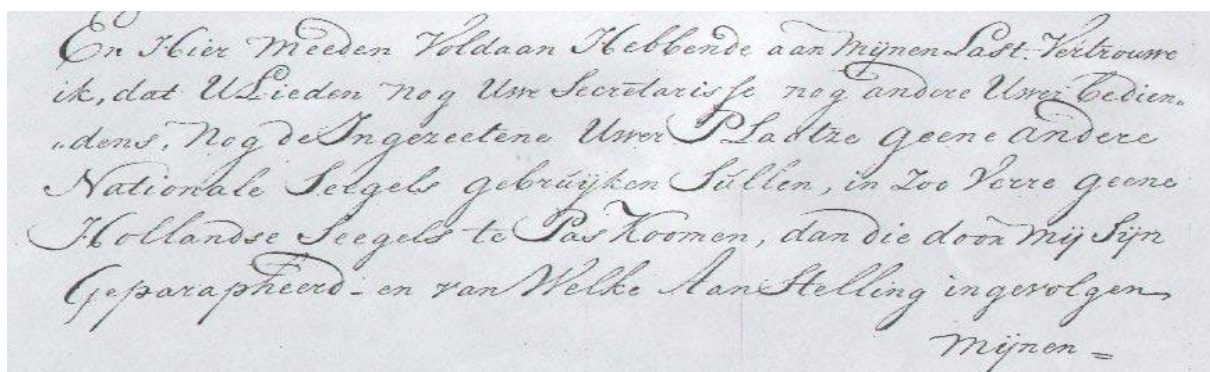 En Hier Meeden Voldaan Hebbende aan Mijnen Last. Vertrouwe
ik, dat ULieden nog Uwe Secretarisse nog andere Uwer Bedien„
„dens, Nog de Ingezeetene Uwer PLaatze geene andere
Nationale Seegels gebruijken Sullen, in Zoo Verre geene
Hollandse Seegels te Pas Koomen, dan die door Mij Sijn
Geparapheerd - en van Welke AanStelling ingevolgen
Mijnen =